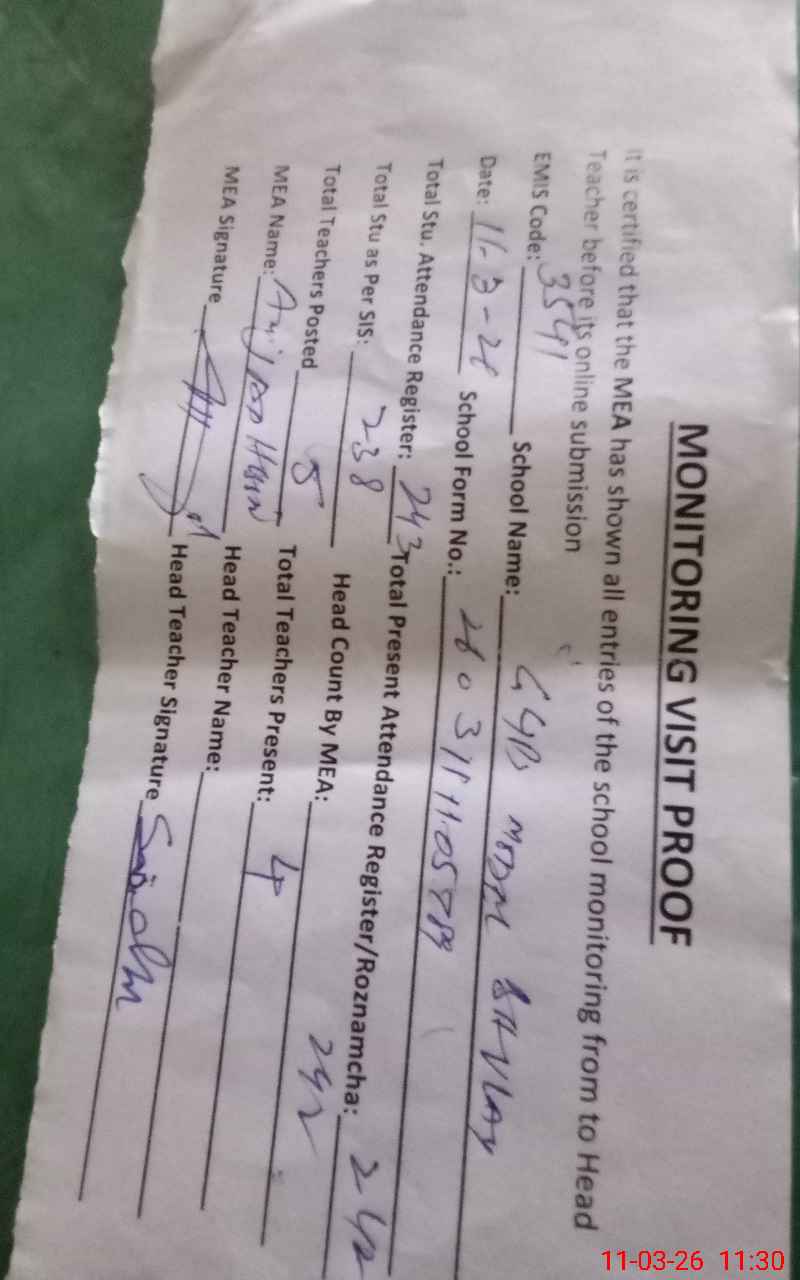 MONITORING VISIT PROOF
It is certified that the MEA has shown all entries of the school monitoring from to Head
Teacher before its online submission
EMIS Code: 3541 School Name: MODEL
Date: 11-3-26 School Form No.:
Total Stu. Attendance Register: 243 Total Present Attendance Register/Roznamcha: 242
Total Stu as Per SIS: 238 Head Count By MEA: 242
Total Teachers Posted 5 Total Teachers Present: 4
MEA Name: Head Teacher Name:
MEA Signature Head Teacher Signature
11-03-26 11:30